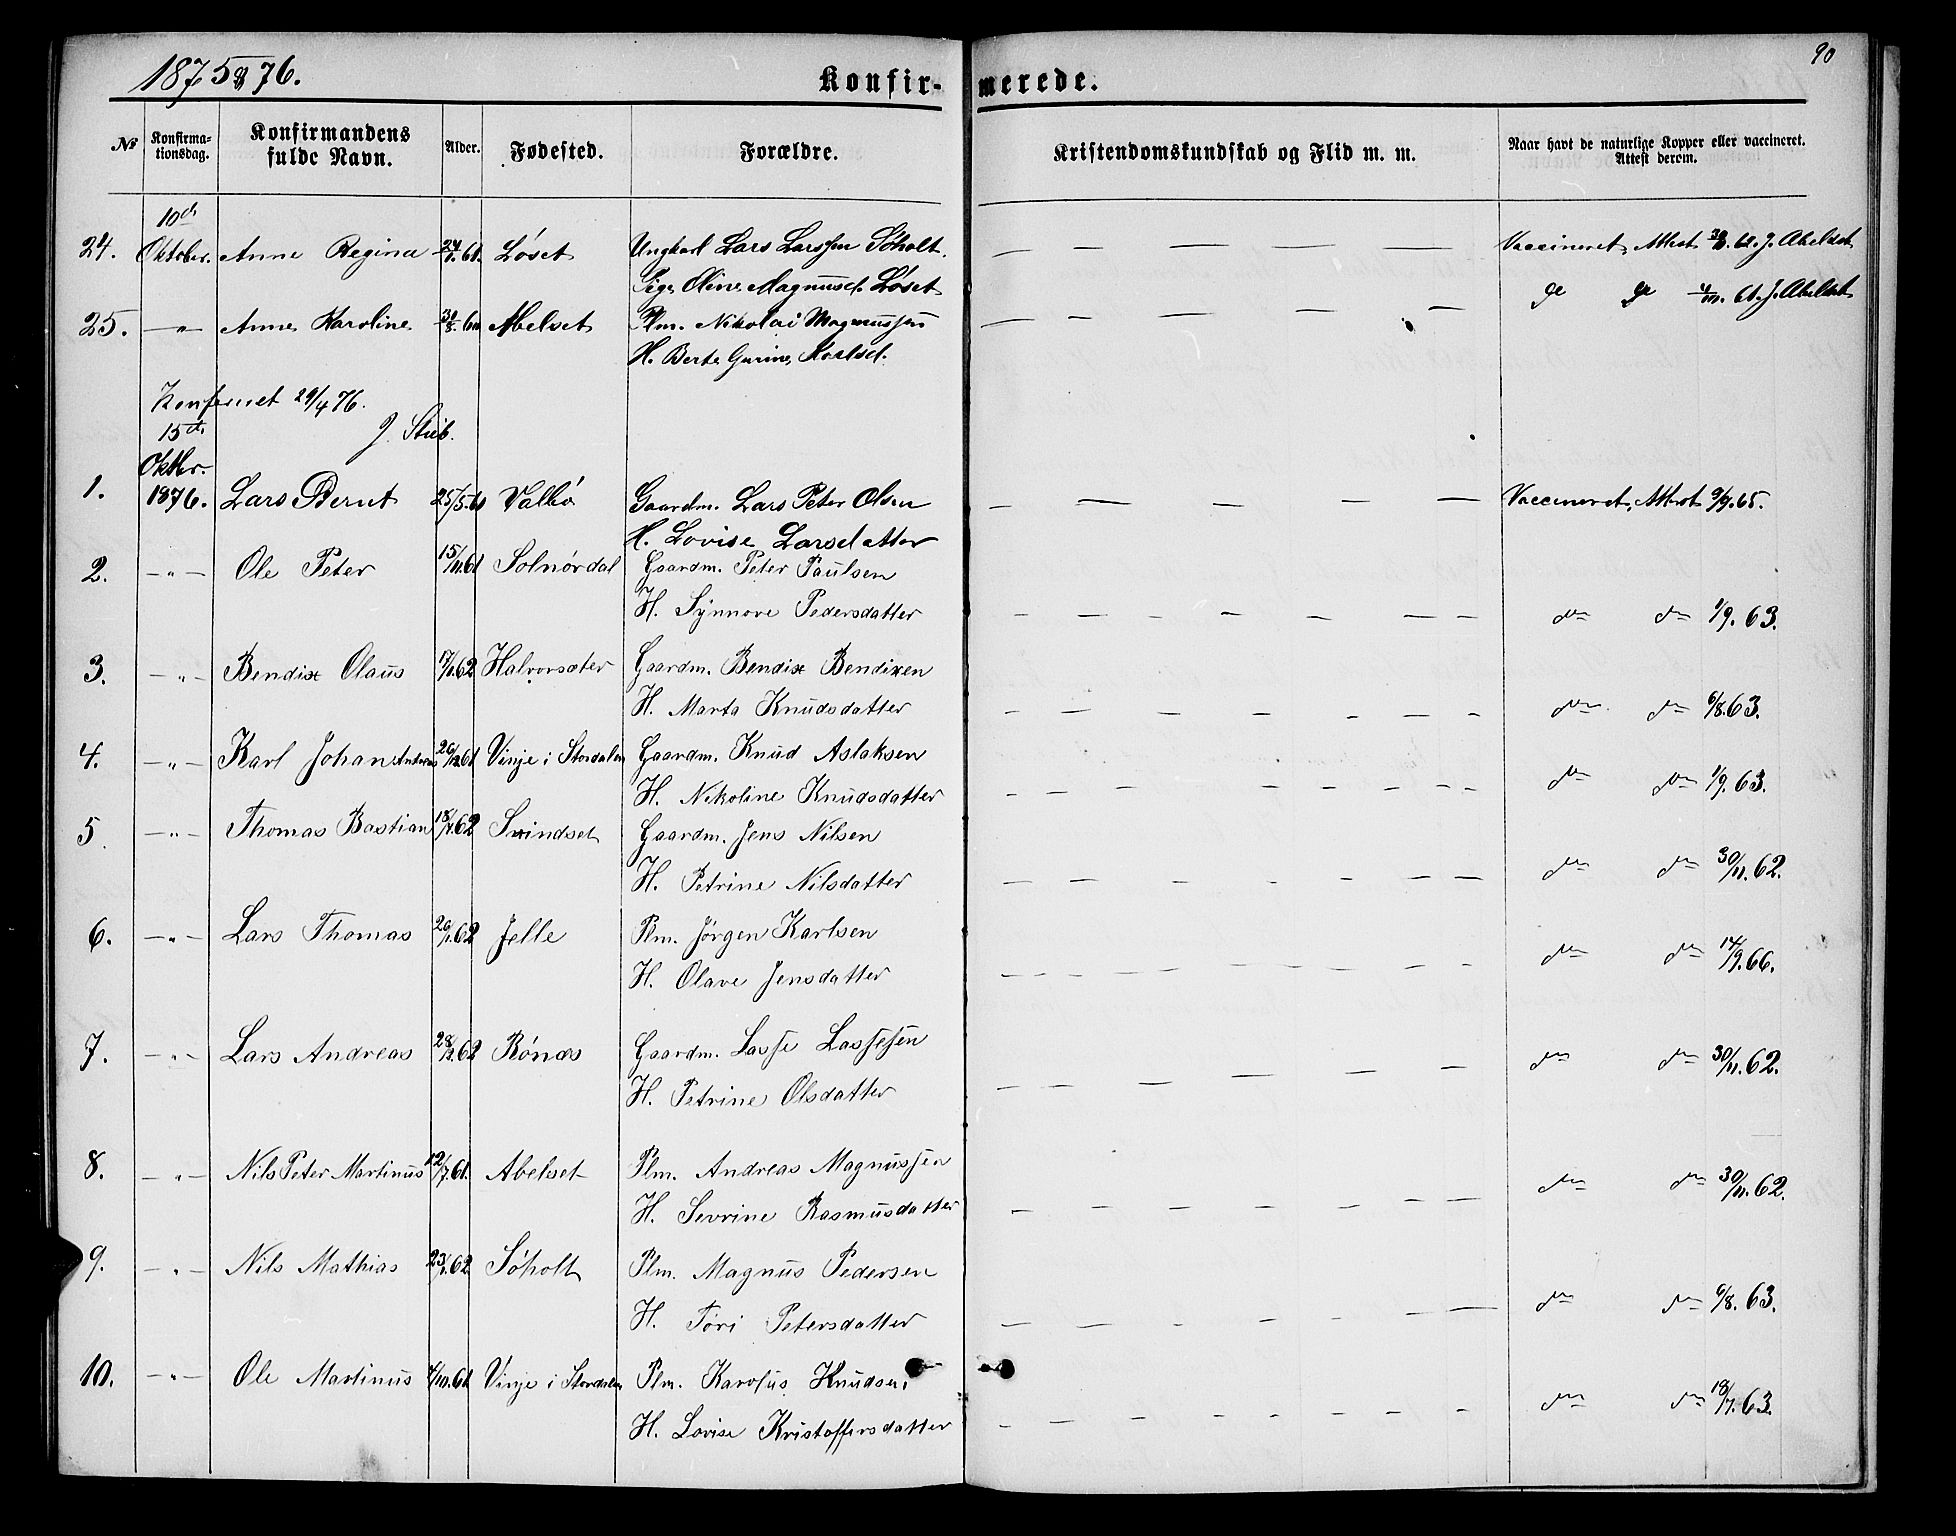 1875 & 76.
Konfirmerede.
90
No
Konfirmationsdag.
Konfirmandens fulde Navn.
Alder.
Fødested.
Forældre.
Kristendomskundskab og Flid m. m.
Naar havt de naturlige Kopper eller vaccineret. Attest derom.
24. 10de Oktober. Anne Regina 24/1.61. Løset Ungkarl Lars Larssen Søholt. Vaccineret, Attest 62. J. Abelset
Pige Oline Magnusd. Løset
25. —"— Anne Karoline 31/8.60 Abelset Plm. Nikolai Magnussen 61. J. Abelset
H. Berte Gurine Karlsd.
Konfereret 29/4 76.
J. Stub.
15de Oktbr. 1876.
1. Lars Bernt 25/5.61 Valbø Gaardm. Lars Peter Olsen Vaccineret, Attest 9/9.65.
H. Lovise Larsdatter
2. —"— Ole Peter 15/11.61 Solnørdal Gaardm. Peter Paulsen
H. Synnove Pedersdatter do do 1/9.63.
3. —"— Bendix Olaus 17/1.62 Halvorsæter Gaardm. Bendix Bendixen
H. Marta Knudsdatter do do 6/8.63.
4. —"— Karl Johan Antonius 26/12.61 Vinje i Stordalen Gaardm. Knud Aslaksen
H. Nikoline Knudsdatter do do 1/9.63.
5. —"— Thomas Bastian 18/1.62 Svindset Gaardm. Jens Nilsen
H. Petrine Nilsdatter do do 30/11.62.
6. —"— Lars Thomas 26/1.62 Jelle Plm. Jørgen Karlsen
H. Olave Jensdatter do do 14/9.66.
7. —"— Lars Andreas 28/2.62 Rønæs Gaardm. Lasse Lassesen
H. Petrine Olsdatter do do 30/11.62.
8. —"— Nils Peter Martinus 12/7.61. Abelset Plm. Andreas Magnussen
H. Sevrine Rasmusdatter do do 30/11.62.
9. —"— Nils Mathias 23/1.62 Søholt Plm. Magnus Pedersen
H. Tøri Petersdatter do do 6/8.63.
10. —"— Ole Martinus 4/10.61 Vinje i Stordalen Plm. Karolus Knudsen
H. Lovise Kristoffersdatter do do 18/7.63.